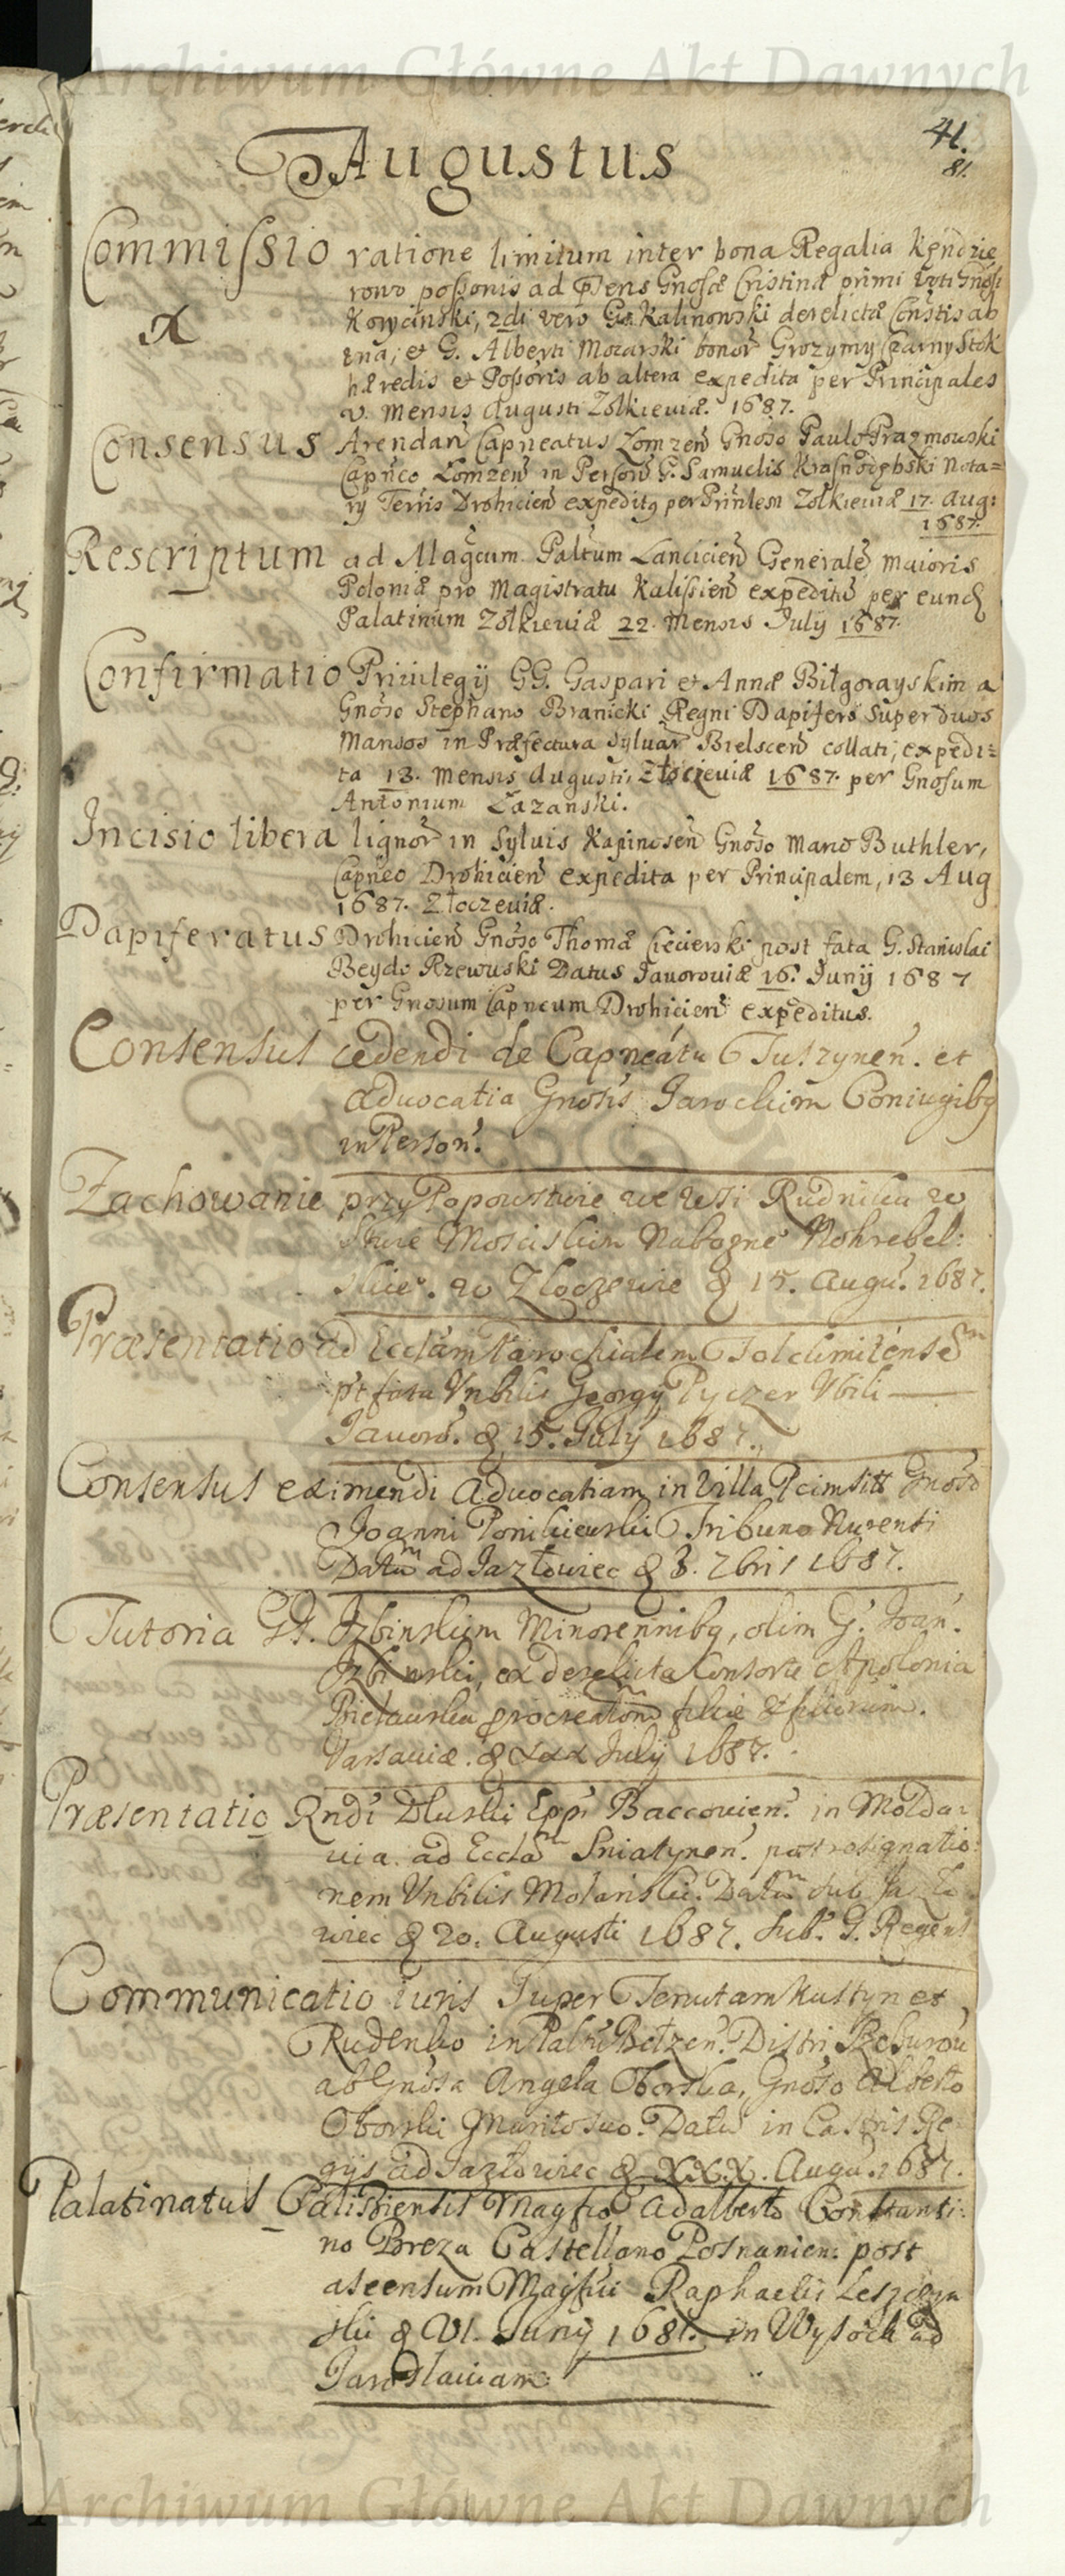 Archiwum Główne Akt Dawnych
Augustus
41.
81.
Commissio ratione limitum inter bona Regalia Kędzie
rowo possonis ad Gnosæ Cristinæ primi
Korycinski, 2di vero G. Kalinowski derelictæ ab
una, et G. Alberti Mozarski bonor Grozymy Czarny Stok
hæredis et Possoris ab altera expedita per Principales
v. Mensis Augusti Zolkieviæ. 1687.
Consensus Arendan Capneatus Lomzen Gnoso Paulo Prazmowski
Capneo Lomzen in Person G. Samuelis Nota=
rij Terris Drohicien expedity per Prinlem Zolkieuiæ 17. Aug:
1687.
Rescriptum ad Magcum Paltum Lancicien Generale maioris
Poloniæ pro Magistratu Kalissien expeditu per eund
Palatinum Zolkieuiæ 22. Mensis July 1687.
Confirmatio Priuilegij GG. Gaspari et Annæ Bilgorayskim a
Gnoso Stephano Branicki Regni Dapifero super duos
Mansos in Præfectura Syluar Bielscen collati, expedi=
ta 13. Mensis Augusti, Złoczeuiæ 1687. per Gnosum
Antonium Łazanski.
Incisio libera lignor in Syluis Kapinosen Gnoso Buthler,
Capneo Drohicien expedita per Principalem, 13 Aug
1687. Złoczeuiæ.
Dapiferatus Drohicien Gnoso Thomæ Ciecierski post fata G. Stanislai
Beydo Rzewuski Datus Jauorouiæ 16. Junij 1687
per Gnosum Capneum Drohicien expeditus.
Consensus cedendi de Capneatu Tuszynen. et
Advocatia Gnosis Jarockim Coniugibq
in Person.
Zachowanie przy Popowstwie we Wsi Rudniku w
Stwie Mosciskim Nohrebel:
skie. w Zloczewie d 15. Augu. 1687.
Præsentatio ad Ecclam Parochialem Tolkmitense
pt fata Vnblis Georgy Pyczer Vbili
Jauoro. d 15. July 1687.
Consensus eximendi Advocatiam in Villa Pcim sitt Gnoso
Joanni Ponikieuski Tribuno Nurensi
Datu ad Jazłowiec d 3. 7bris 1687.
Tutoria GG. Izbinskim Minorennibq, olim G. Joan.
Izbinski, ex derelicta Consorte Apolonia
procreation filiæ & filiorum.
Varsauiæ. d XXX July 1687.
Præsentatio Rndi Dłuski Eppi Baccouien. in Molda:
uia. ad Eccla Sniatynen. post resignatio:
nem Vnbilis Molanski. Datu sub Jazło
wiec d 20. Augusti 1687. sub. G. Regent
Communicatio iuris super Tenutam Kustyn et
Rudenko in Paltu Bełzen. Distri
ab Gnosa Angela Oborska, Gnoso Alberto
Oborski Marito suo. Datu in Castris Re
gijs ad Jazłowiec d XXX. Augu. 1687.
Palatinatus Calissiensis Magfco Adalberto Constanti:
no Breza Castellano Posnanien: post
ascensum Magfici Raphaelis Leszczyn
ski d VI. Junij 1687. in Wysock ad
Jaroslauiam
Archiwum Główne Akt Dawnych